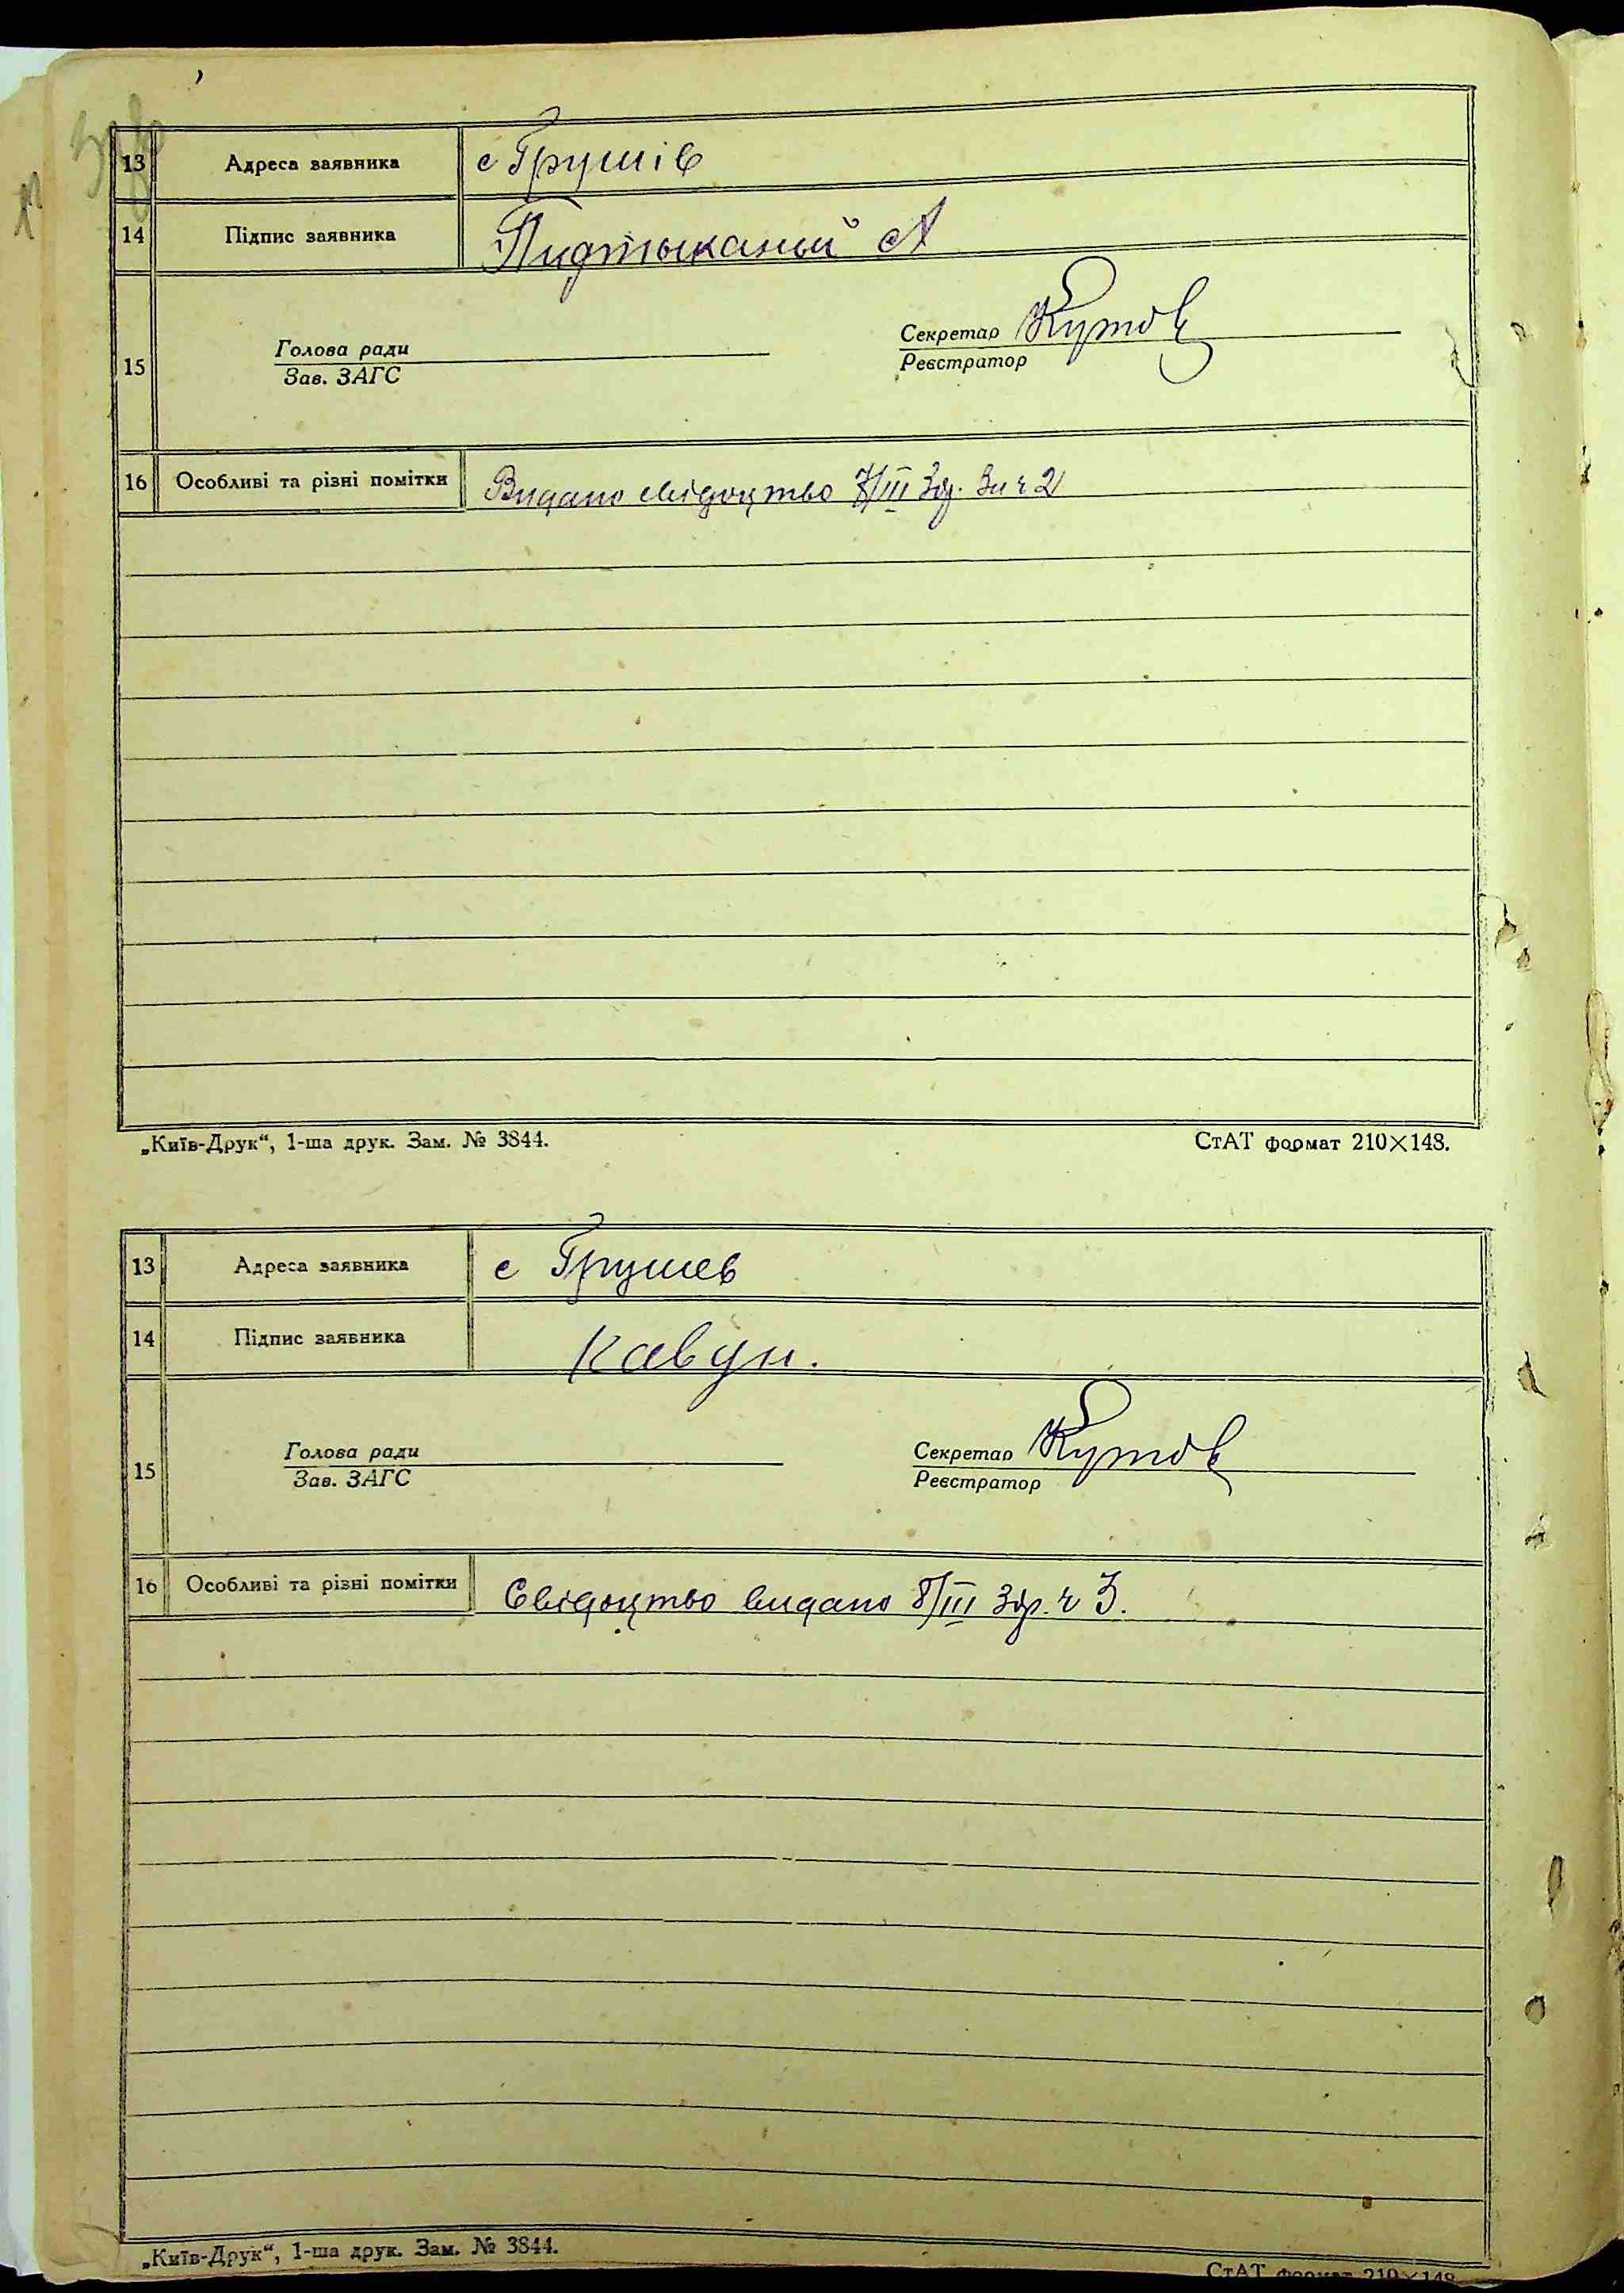 13 Адреса заявника с Грушів
14 Підпис заявника Пидтыканый А
15 Голова ради Секретар Кутов
Зав. ЗАГС Реєстратор
16 Особливі та різні помітки Видано свідоцтво 7/III 33р. За ч 2
„Київ-Друк“, 1-ша друк. Зам. № 3844. СтАТ формат 210×148.
13 Адреса заявника с Грушев
14 Підпис заявника Кавун.
15 Голова ради Секретар Кутов
Зав. ЗАГС Реєстратор
16 Особливі та різні помітки Свідоцтво видано 8/III 33р. ч 3.
„Київ-Друк“, 1-ша друк. Зам. № 3844.
СтАТ формат 210×148